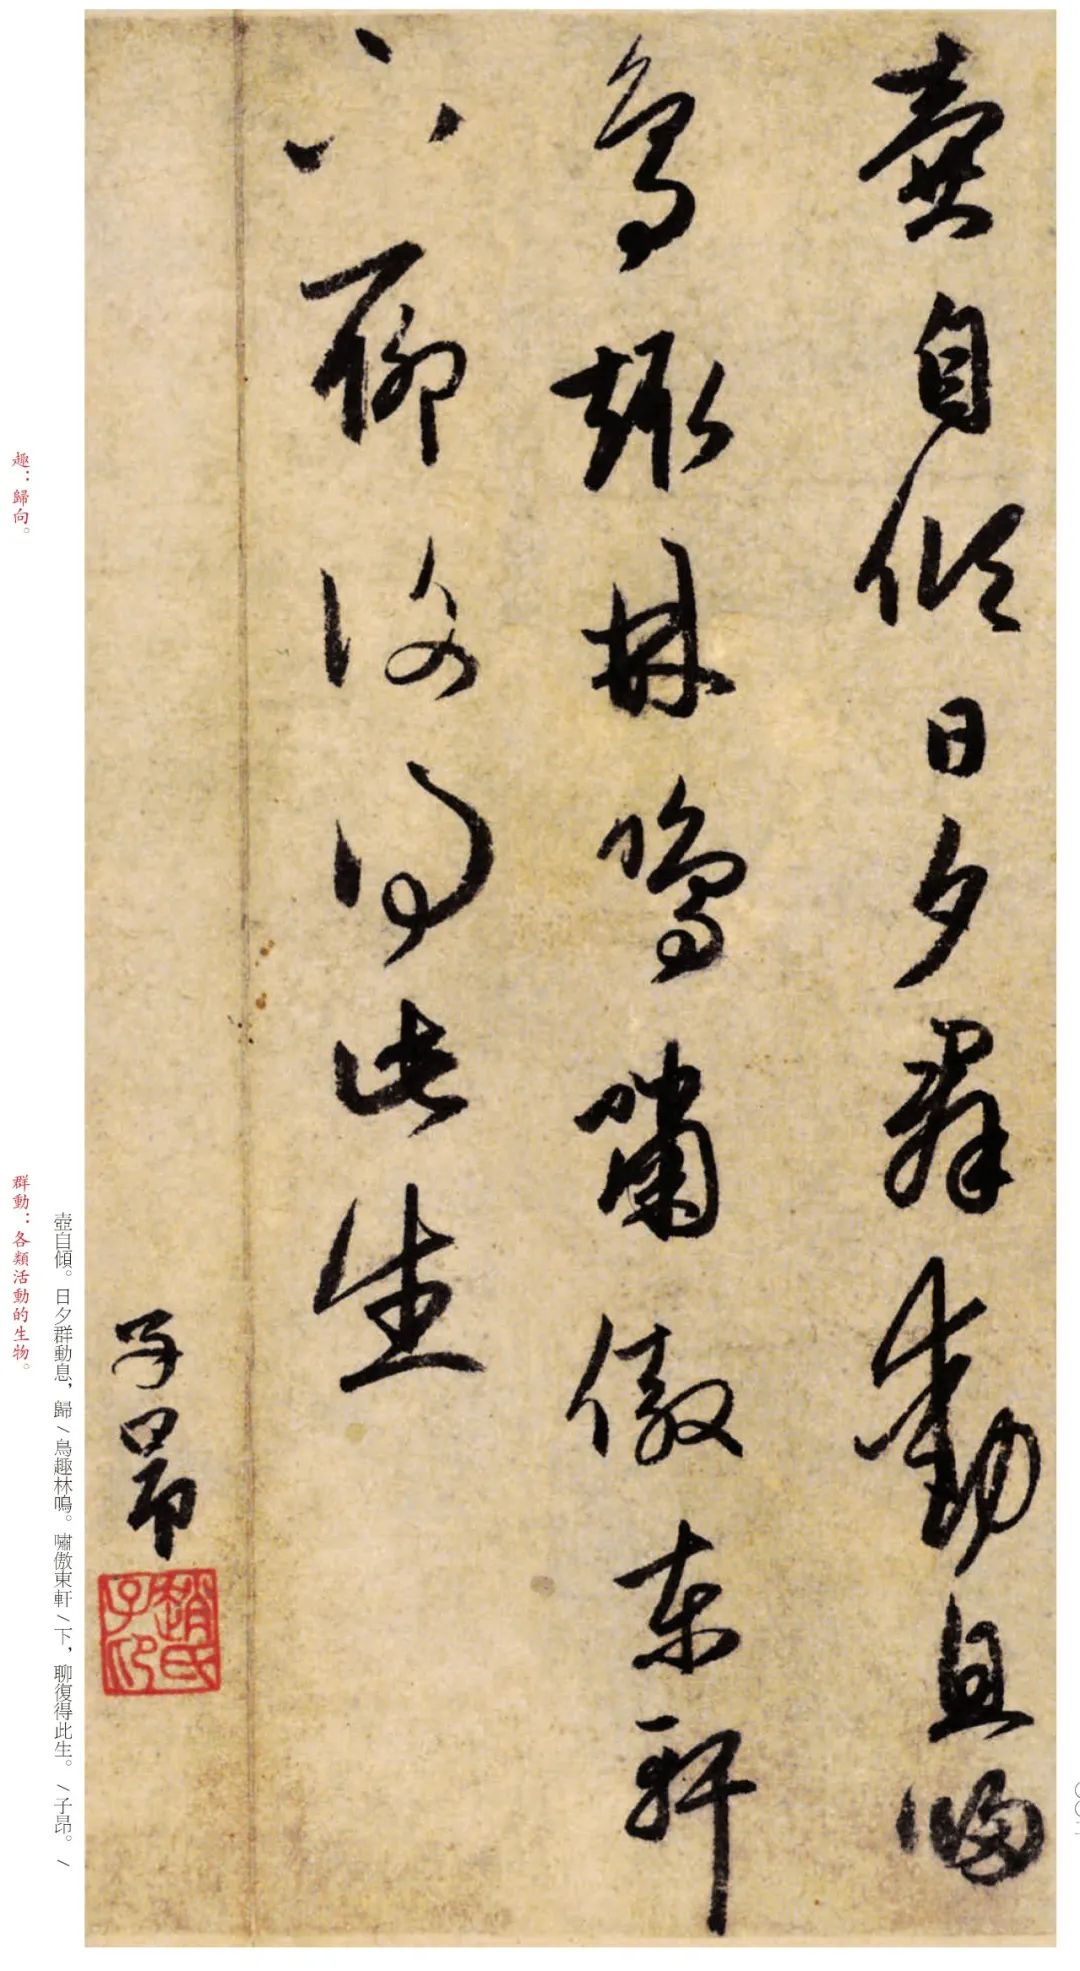 壺自傾日夕群動息歸
鳥趣林鳴嘯傲東軒
下聊復得此生
子昂
趙氏子印
壺自傾。日夕群動息，歸/鳥趣林鳴。嘯傲東軒/下，聊復得此生。/子昂。/
趣：歸向。
群動：各類活動的生物。